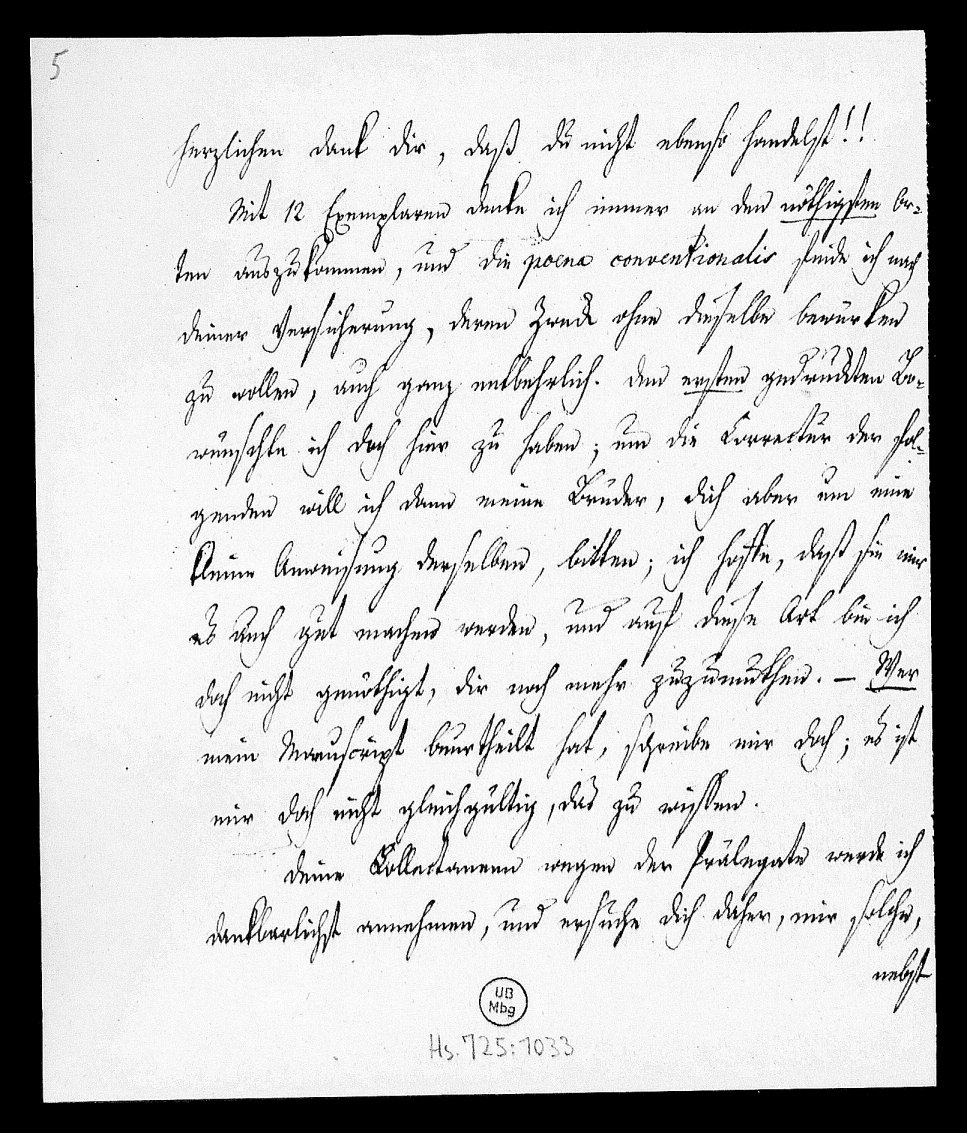 5
herzlichen Dank dir, daß du nicht ebenso handelst!!
Mit 12 Exemplaren denke ich immer an den nöthigsten Or-
ten auszukommen, und die poena conventionalis finde ich nach
deiner Versicherung, deren Zweck ohne dieselbe bewürken
zu wollen, auch ganz entbehrlich. Den ersten gedruckten Bo-
wünschte ich doch hier zu haben; um die Correctur der fol-
genden will ich dann meine Brüder, dich aber um eine
kleine Anweisung derselben, bitten; ich hoffe, daß sie mir
es auch gut machen werden, und auf diese Art bin ich
doch nicht genöthigt, dir noch mehr zuzumuthen. – Wer
mein Manuscript beurtheilt hat, schreibe mir doch; es ist
mir doch nicht gleichgültig, das zu wissen.
Deine Collectaneen wegen der Prälegate werde ich
dankbarlichst annehmen, und ersuche dich daher, mir solche,
nebst
UB
Mbg
Hs. 725:1033